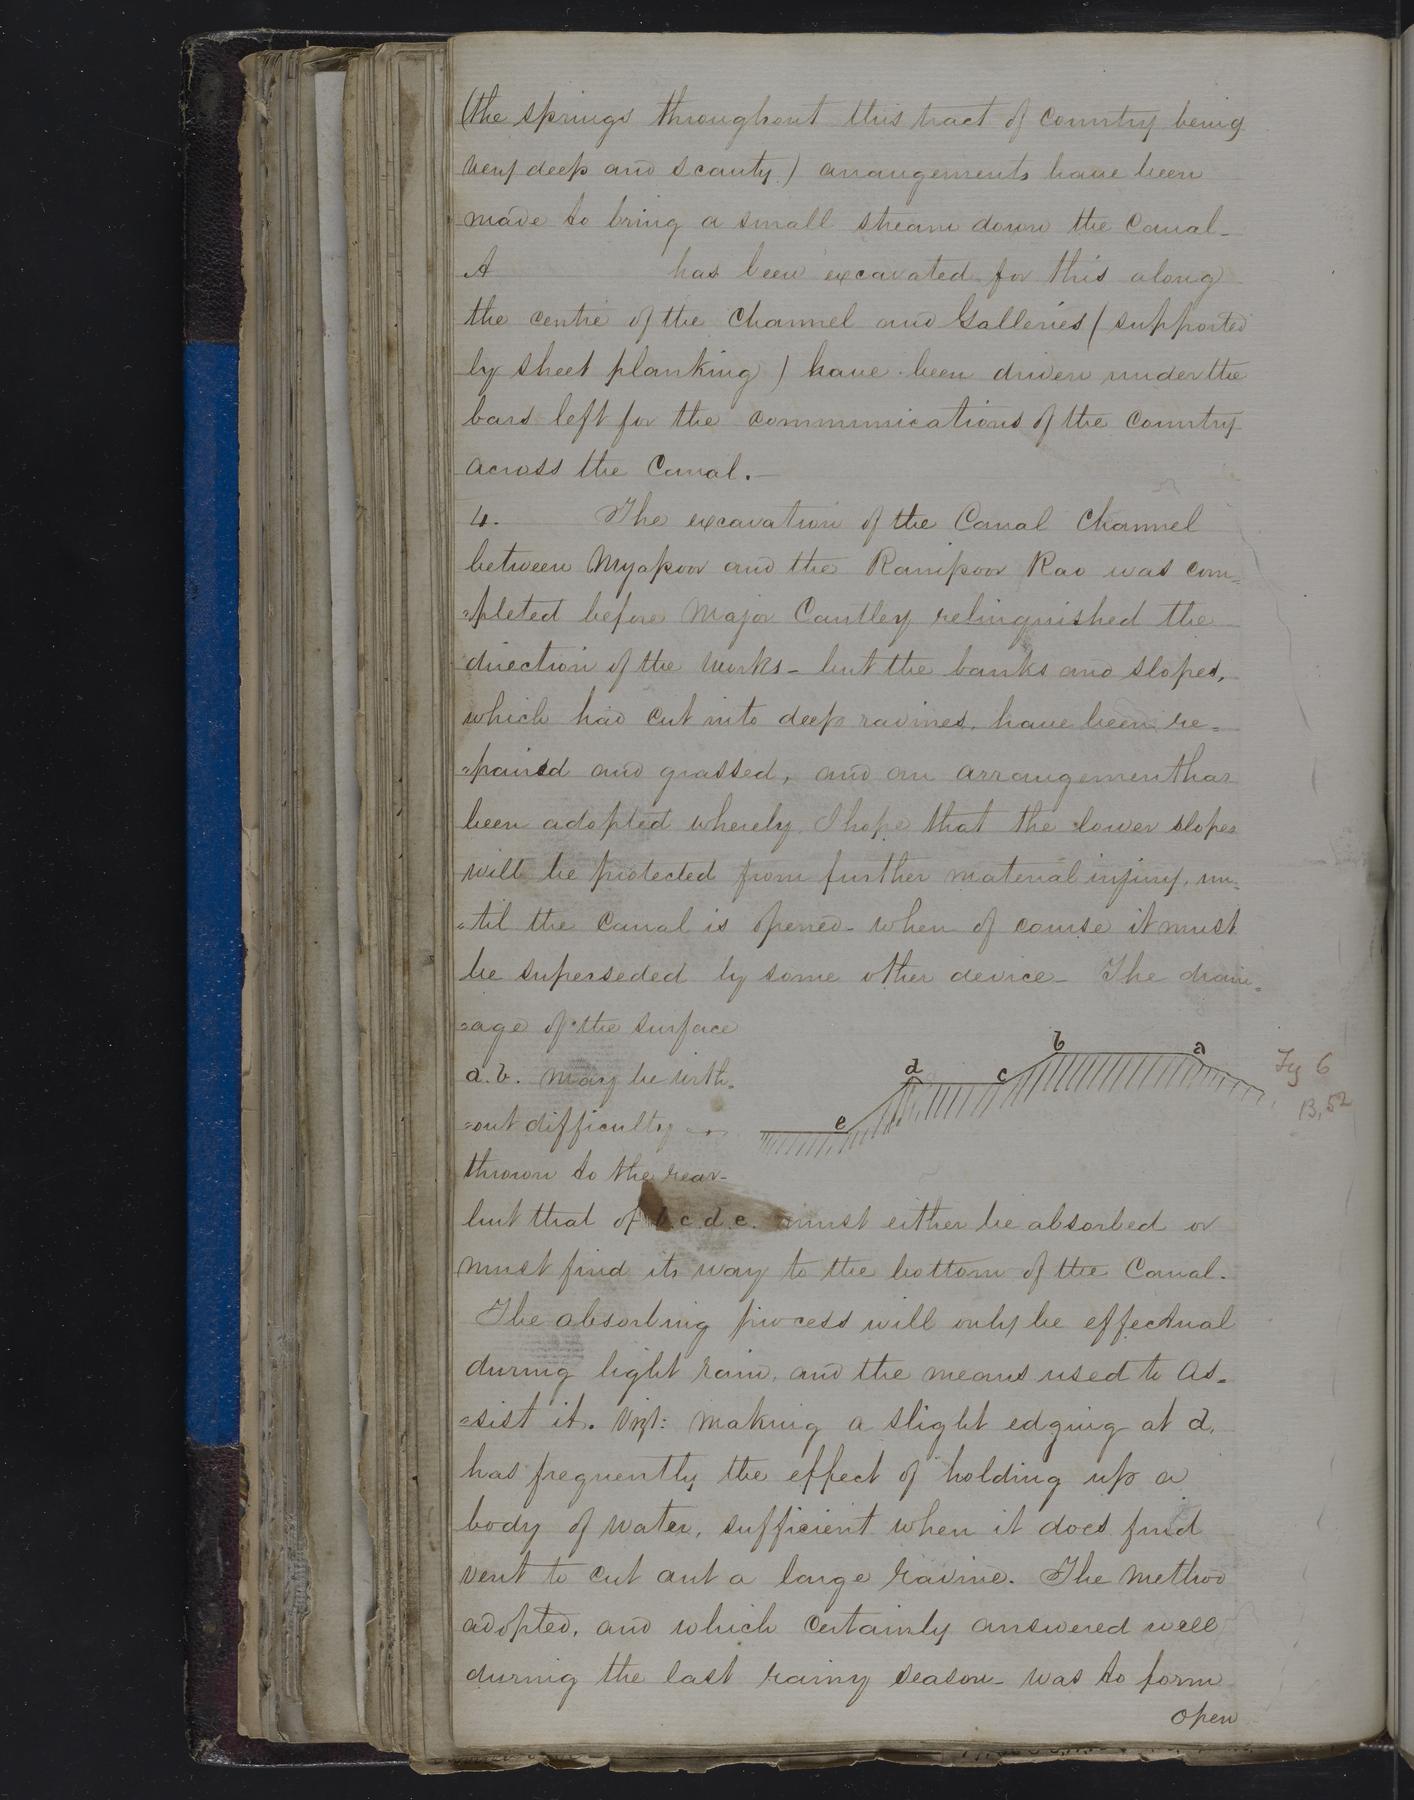 (the springs throughout this tract of country being
very deep and scanty) arrangements have been
made to bring a small stream down the Canal -
A has been excavated for this along
the centre of the Channel and Galleries (supported
by sheet planking) have been driven under the
bars left for the communications of the Country
across the Canal. -
4. The excavation of the Canal Channel
between Myapoor and the Ranipoor Rao was com=
=pleted before Major Cautley relinquished the
direction of the works - but the banks and slopes,
which had cut into deep ravines, have been re=
=paired and grassed, and an arrangement has
been adopted whereby I hope that the lower slopes
will be protected from further material injury, un=
=til the Canal is opened - when of course it must
be superseded by some other device - The drain=
=age of the surface
a.b. may be with=
=out difficulty
thrown to the rear -
but that of b.c.d.e. must either be absorbed or
must find its way to the bottom of the Canal.
The absorbing process will only be effectual
during light rain, and the means used to as=
=sist it. Vizt: making a slight edging at d,
has frequently the effect of holding up a
body of water, sufficient when it does find
vent to cut out a large ravine. The method
adopted, and which certainly answered well
during the last rainy season - was to form
open
b a
d c
e
Fig 6
B, 52